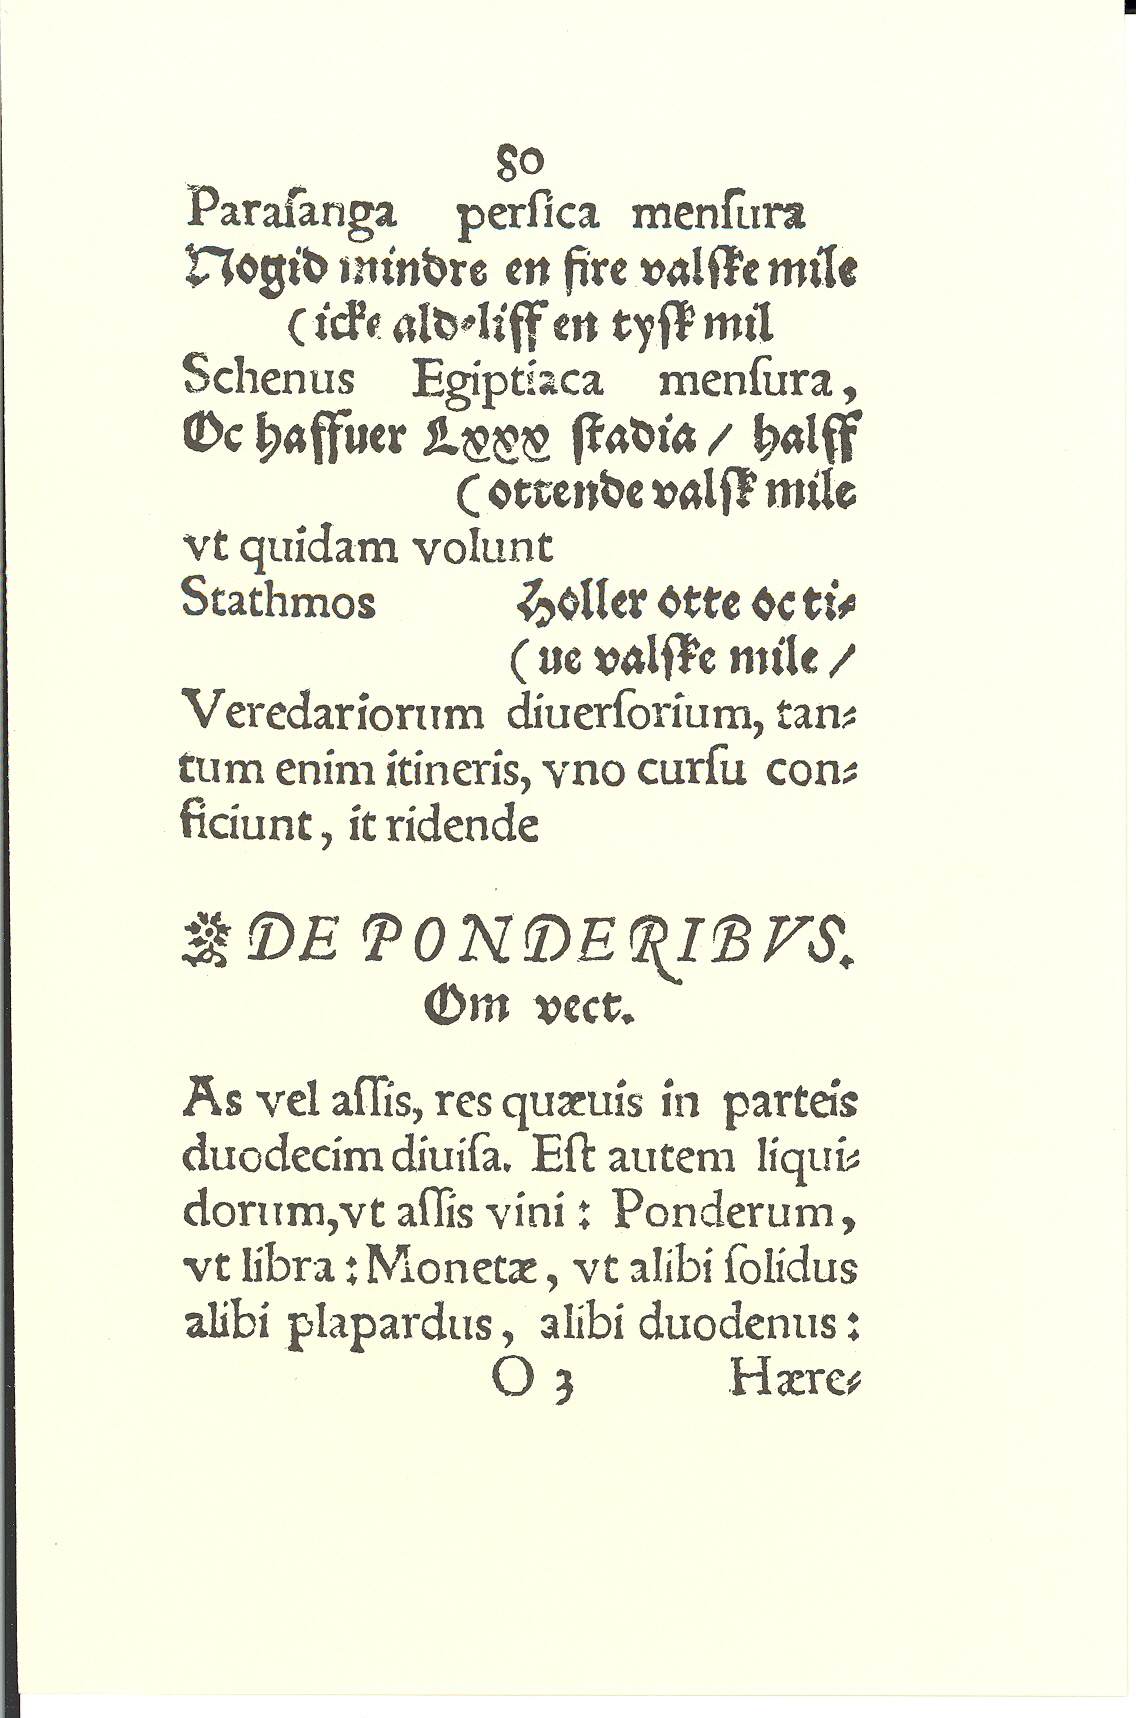 80
Paraſanga perſica menſura
Nogid mindre en fire valſke mile
(icke aldeliff en tyſk mil
Schenus Egiptiaca menſura,
Oc haffuer Lxxx ſtadia / halff
(ottende valſk mile
vt quidam volunt
Stathmos Holler otte oc ti⸗
(ue valſke mile /
Veredariorum diuerſorium, tan⸗
tum enim itineris, vno curſu con⸗
ficiunt, it ridende
DE PONDERIBVS.
Om vect.
As vel aſſis, res quæuis in parteis
duodecim diuiſa. Eſt autem liqui⸗
dorum,vt aſſis vini : Ponderum,
vt libra : Monetæ, vt alibi ſolidus
alibi plapardus, alibi duodenus :
O 3 Hære⸗